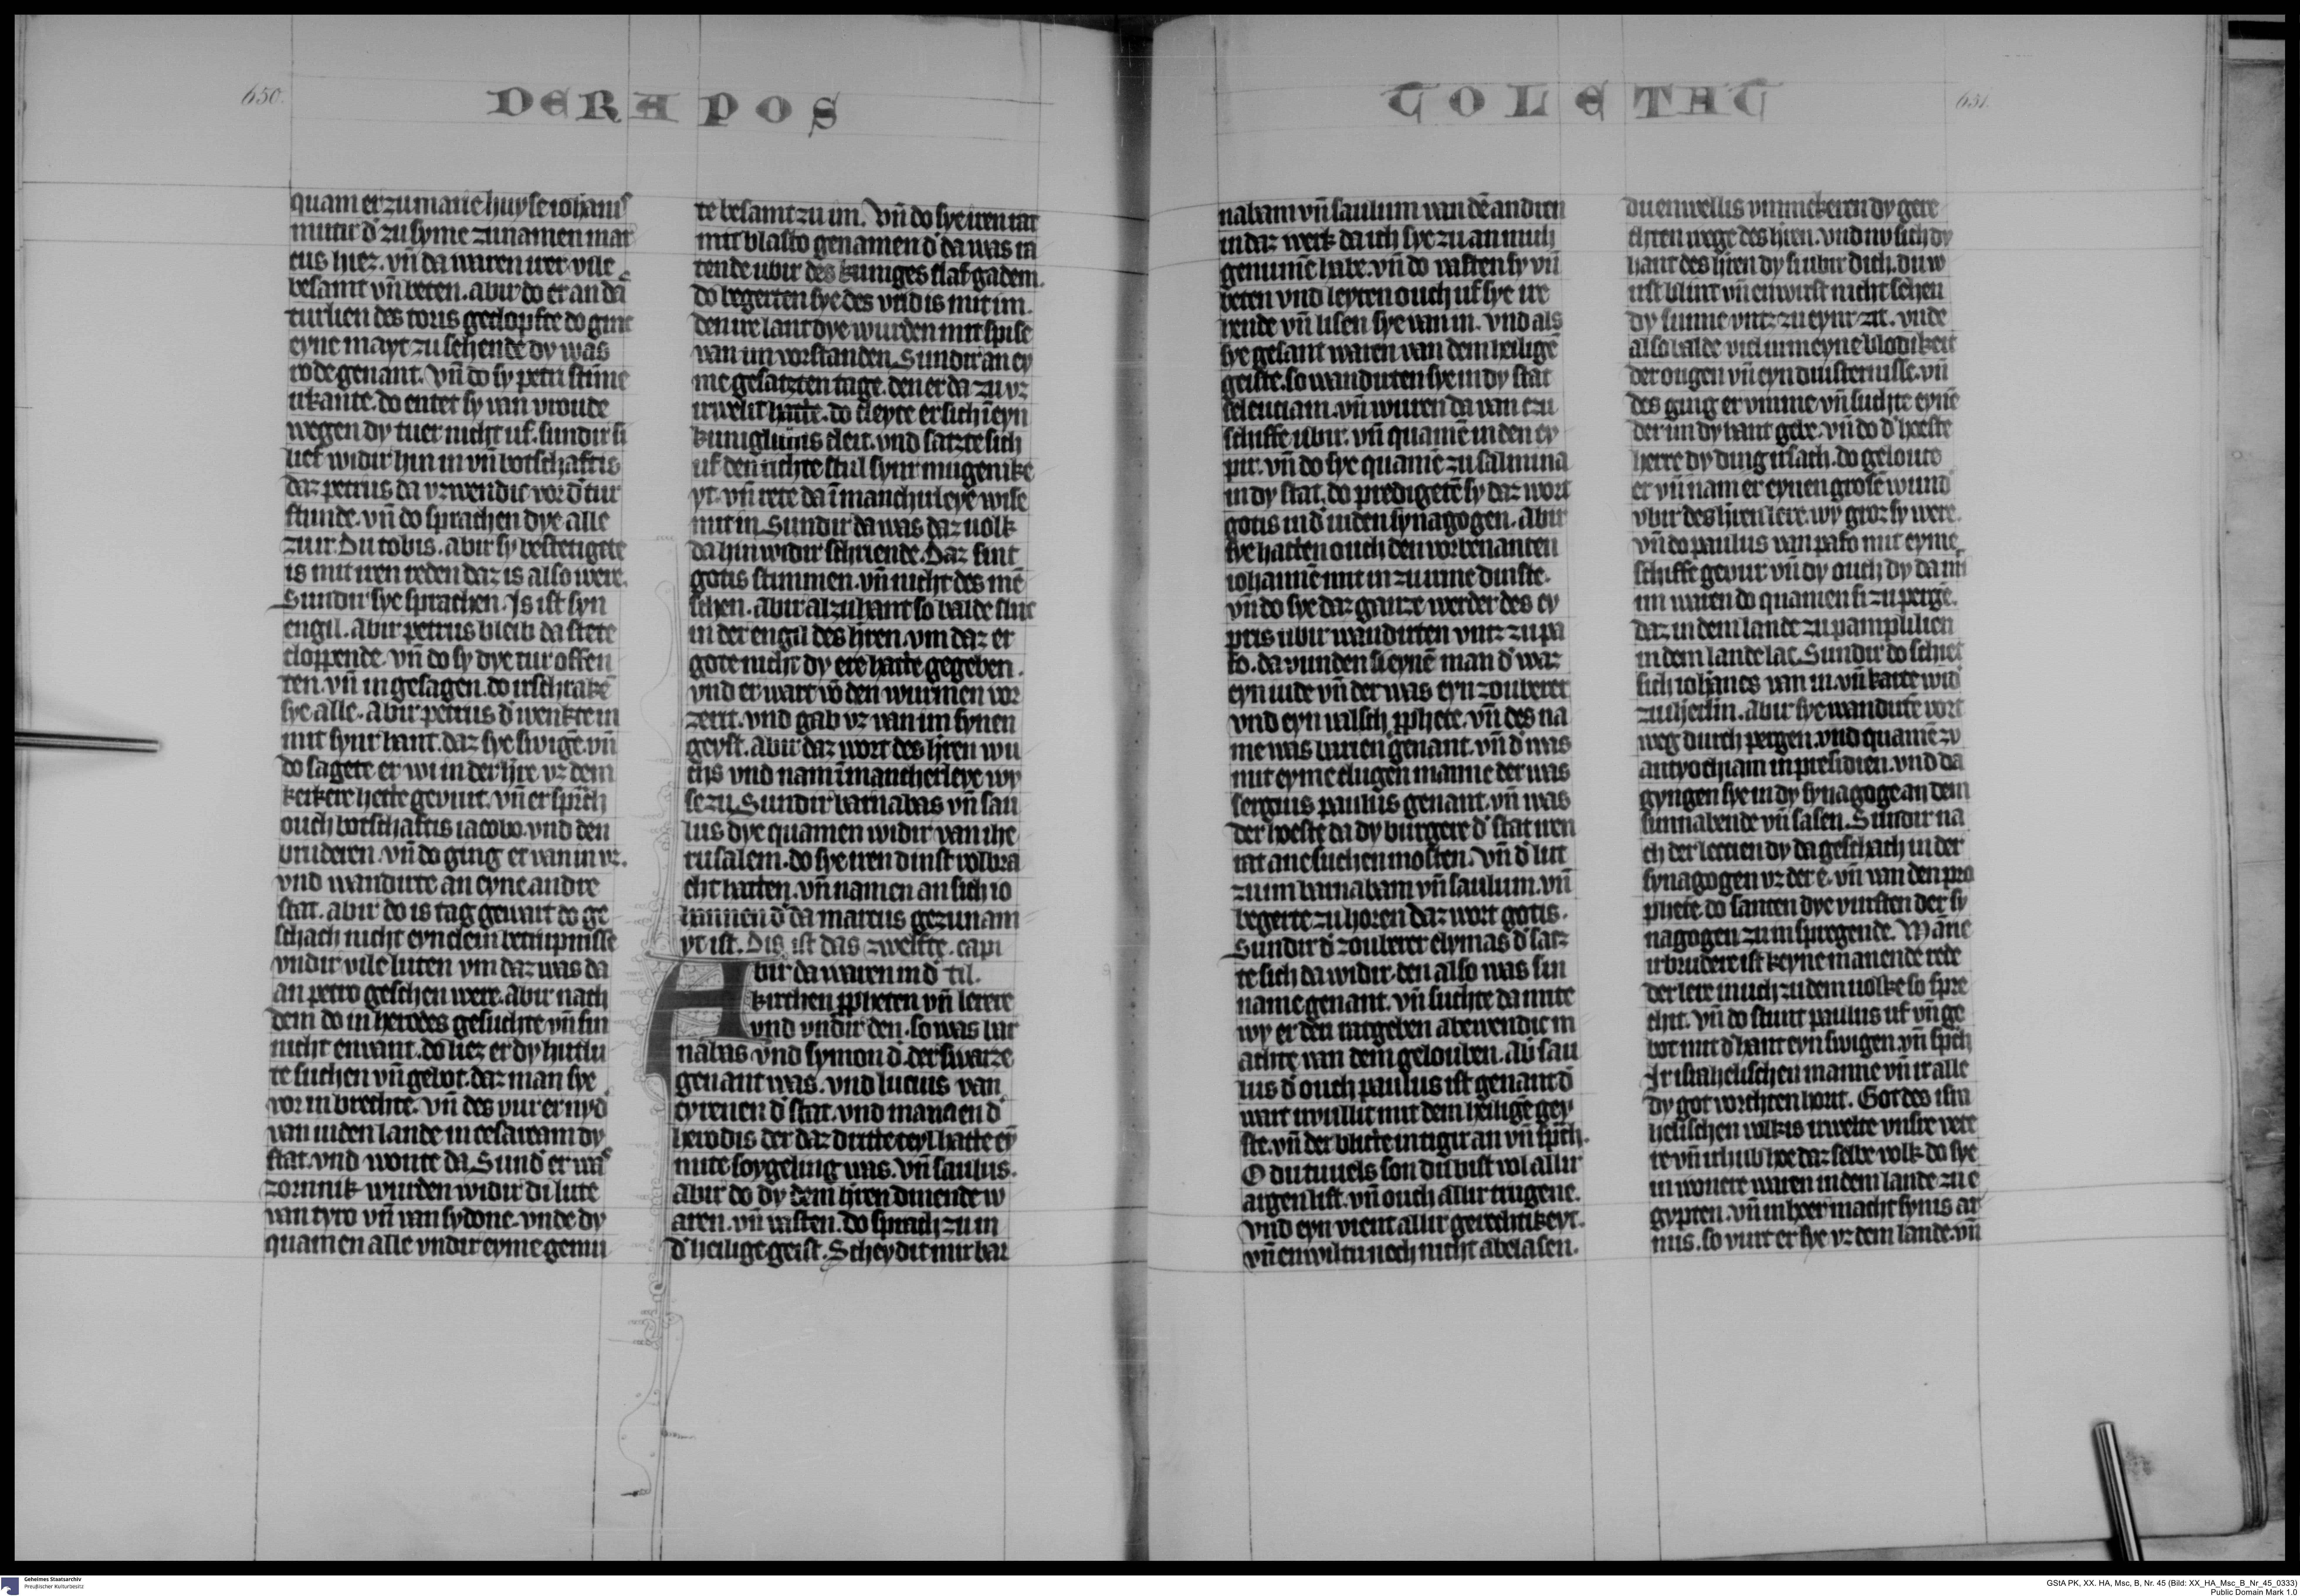 650.
DER APOS
quam er zu marie huyse iohanis
mutir d' zu syme zunamen mar
cus hiez. vn̄ da waren irer vile
besamt vn̄ beten. abir do er an dā
turlien des toris geclopfte do ginc
eyne mayt zu sehende dy was
rode genant. Vn̄ do sy petri stīme
irkante. do entet sy van vroude
wegen dy tuer nicht uf. sundir si
lief widir hin in vn̄ botschaftis
daz petrus da vzwendic vor d' tur
stunde. vn̄ do sprachen dye alle
zu ir. Du tobis. abir sy bestetigete
is mit iren reden daz is also were.
Sundir sye sprachen. Is ist syn
engil. abir petrus bleib da stete
cloppende. vn̄ do sy dye tur offen
ten. vn̄ in gesagen. do irschrakē
sye alle. Abir petrus d' wenkte in
mit synr hant. daz sye swigē. vn̄
do sagete er wi in der h're vz dem
kerkere hette gevurt. vn̄ er sprch
ouch botschaftis iacobo. vnd den
bruderen. vn̄ do ging er van in vz.
vnd wandirte an eyne andre
stat. abir do is tag gewart do ge
schach nicht eyn clein betrupnisse
vndir vile luten vm daz was da
an petro geschen were. abir nach
dem do in herodes gesuchte vn̄ sin
nicht envant. do liez er dy huttln
te suchen vn̄ gebot. daz man sye
vor in brechte. vn̄ des vur er nyd'
van iuden lande in cesaream dy
stat. vnd wonte da. Sund' er was
zornnik wurden widir di lute
van tyro vn̄ van sydone. vnde dy
quamen alle vndir eyme gemu
te besamt zu im. Vn̄ do sye iren rat
mit blasto genamen d' da was ra
tende ubir des kuniges slaf gadem.
do begerten sye des vridis mit im.
den ire lant dye wurden mit spise
van im vorstanden. Sundir an ey
me gesatzten tage. den er da zu vz
irwelit hatte. do cleyte er sich ī eyn
kuniglichis cleit. vnd satzte sich
uf den richte stul synr mugenike
yt. vn̄ rete da ī manchirleye wise
mit in. Sundir da was daz uolk
da hin widir schriende. Daz sint
gotis stimmen. vn̄ nicht des mē
schen. Abir alzuhant so balde sluc
in der engil des h'ren. vm daz er
gote nicht dy ere hatte gegeben.
vnd er wart vō den wurmen vor
zerit. vnd gab vz van im synen
geyst. Abir daz wort des h'ren wu
chs vnd nam ī mancherleye wy
se zu. Sundir barnabas vn̄ sau
lus dye quamen widir van ihe
rusalem. do sye iren dinst volbra
cht hatten. vn̄ namen an sich io
hannen d' da marcus gezunam
yt ist. Dis ist das zwelfte capi
Abir da waren in d' til.
kirchen ppheten vn̄ lerere
vnd vndir den. so was bar
nabas vnd symon d'. der swarze
genant was. vnd lucius van
cyrenen d' stat. vnd manaen d'
herodis der daz dritte teyl hatte ey
mite soygeling was. vn̄ saulus.
Abir do dy dem h'ren dinende w
aren. vn̄ vasten. do sprach zu in
d' heilige geist. Scheydit mir bar
TOLE TAC
651.
nabam vn̄ saulum van dē andren
in daz werk da ich sye zu an mich
genumē habe. vn̄ do vasten sy vn̄
beten vnd leyten ouch uf sye ire
hende vn̄ lisen sye van in. vnd als
sye gesant waren van dem heiligē
geiste. so wandirten sye in dy stat
seleuciam. vn̄ wuren da van czu
schiffe ubir. vn̄ quamē in den cy
pir. vn̄ do sye quamē zu salmina
in dy stat. do predigetē sy daz wort
gotis in d' iuden synagogen. Abir
sye hatten ouch den vorbenanten
iohannē mit in zu irme dinste.
vn̄ do sye daz ganze werder des cy
pris ubir wandirten vntz zu pa
fo. da vunden si eynē man d' waz
eyn iude vn̄ der was eyn zouberer
vnd eyn valsch pphete. vn̄ des na
me was barieu genant. vn̄ d' was
mit eyme clugen manne der was
sergius paulus genant. vn̄ was
der hoeste da dy burgere d' stat iren
rat ane suchen mosten. Vn̄ d' lut
zu im barnabam vn̄ saulum. vn̄
begerte zu horen daz wort gotis.
Sundir d' zouberer elymas d' satz
te sich da widir. den also was sin
name genant. vn̄ suchte da mite
wy er den ratgeben abewendic m
achte van dem gelouben. Ab' sau
lus d' ouch paulus ist genant d'
wart irvullit mit dem heiligē gey
ste. vn̄ der blicte in tigir an vn̄ sprch.
O du tuuels son du bist vol allir
argen list. vn̄ ouch allir trugene.
vnd eyn vient allir gerechtikeyt.
vn̄ enwiltu noch nicht abelasen.
du enwellis vmmekeren dy gere
chten wege des h'ren. vnd nv sich dy
hant des h'ren dy si ubir dich. du w
irst blint vn̄ enwirst nicht sehen
dy sunne vntz zu eynr zit. vnde
alsobalde viel im eyne blodikeit
der ougen vn̄ eyn duisternisse. vn̄
des ging er vmme vn̄ suchte eynē
der im dy hant gebe. vn̄ do d' hoeste
herre dy ding irsach. do geloute
er vn̄ nam er eynen grosē wund'
vbir des h'ren lere. wy groz sy were.
vn̄ do paulus van pafo mit eyme
schiffe gevur. vn̄ dy ouch dy da mi
im waren do quamen si zu pergē.
daz in dem lande zu pamphilien
in dem lande lac. Sundir do schiet
sich iohānes van in. vn̄ karte wid'
zu ih'erlin. abir sye wandirtē vort
weg durch pergen. vnd quamē zv
antyochiam in presidien. vnd da
gyngen sye in dy synagoge an dem
sunnabende vn̄ sasen. Sundir na
ch der lectien dy da geschach in der
synagogen vz der e. vn̄ van den pro
phete. do santen dye vursten der sy
nagogen zu in spregende. Māne
ir brudere ist keyne manende rete
der lere in uch zu dem uolke so spre
chit. vn̄ do stunt paulus uf vn̄ ge
bot mit d' hant eyn swigen. vn̄ sprch
Ir israhelischen manne vn̄ ir alle
dy got vorchten hout. Got des isra
helischen volkis irwelte vnsre vete
re vn̄ irhub hoe daz selbe volk do sye
in wonere waren in dem lande zu e
gypten. vn̄ in hoer macht synis ar
mis. so vurt er sye vz dem lande. vn̄
Geheimes Staatsarchiv
Preußischer Kulturbesitz
GStA PK, XX. HA, Msc, B, Nr. 45 (Bild: XX_HA_Msc_B_Nr_45_0333)
Public Domain Mark 1.0